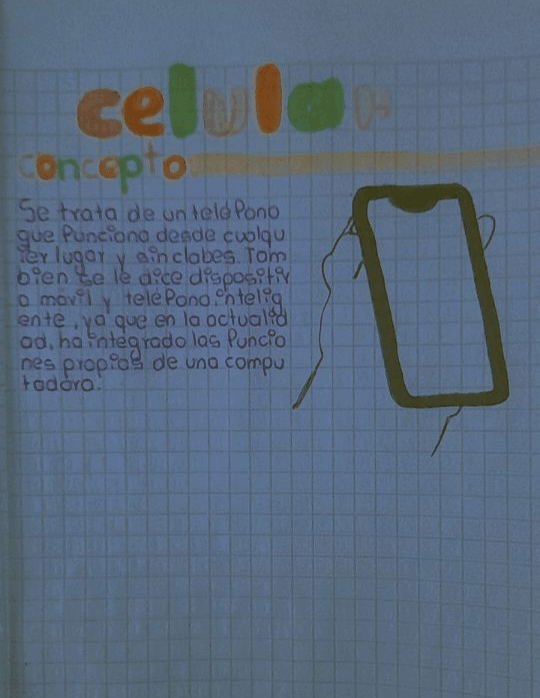 celular
concepto
Se trata de un teléfono
que funciona desde cualqu
ier lugar y ainclabes. Tam
bien se le dice dispositiv
o movil y teléfono intelig
ente, ya que en la actualid
ad, ha integrado las funcio
nes propias de una compu
tadora.